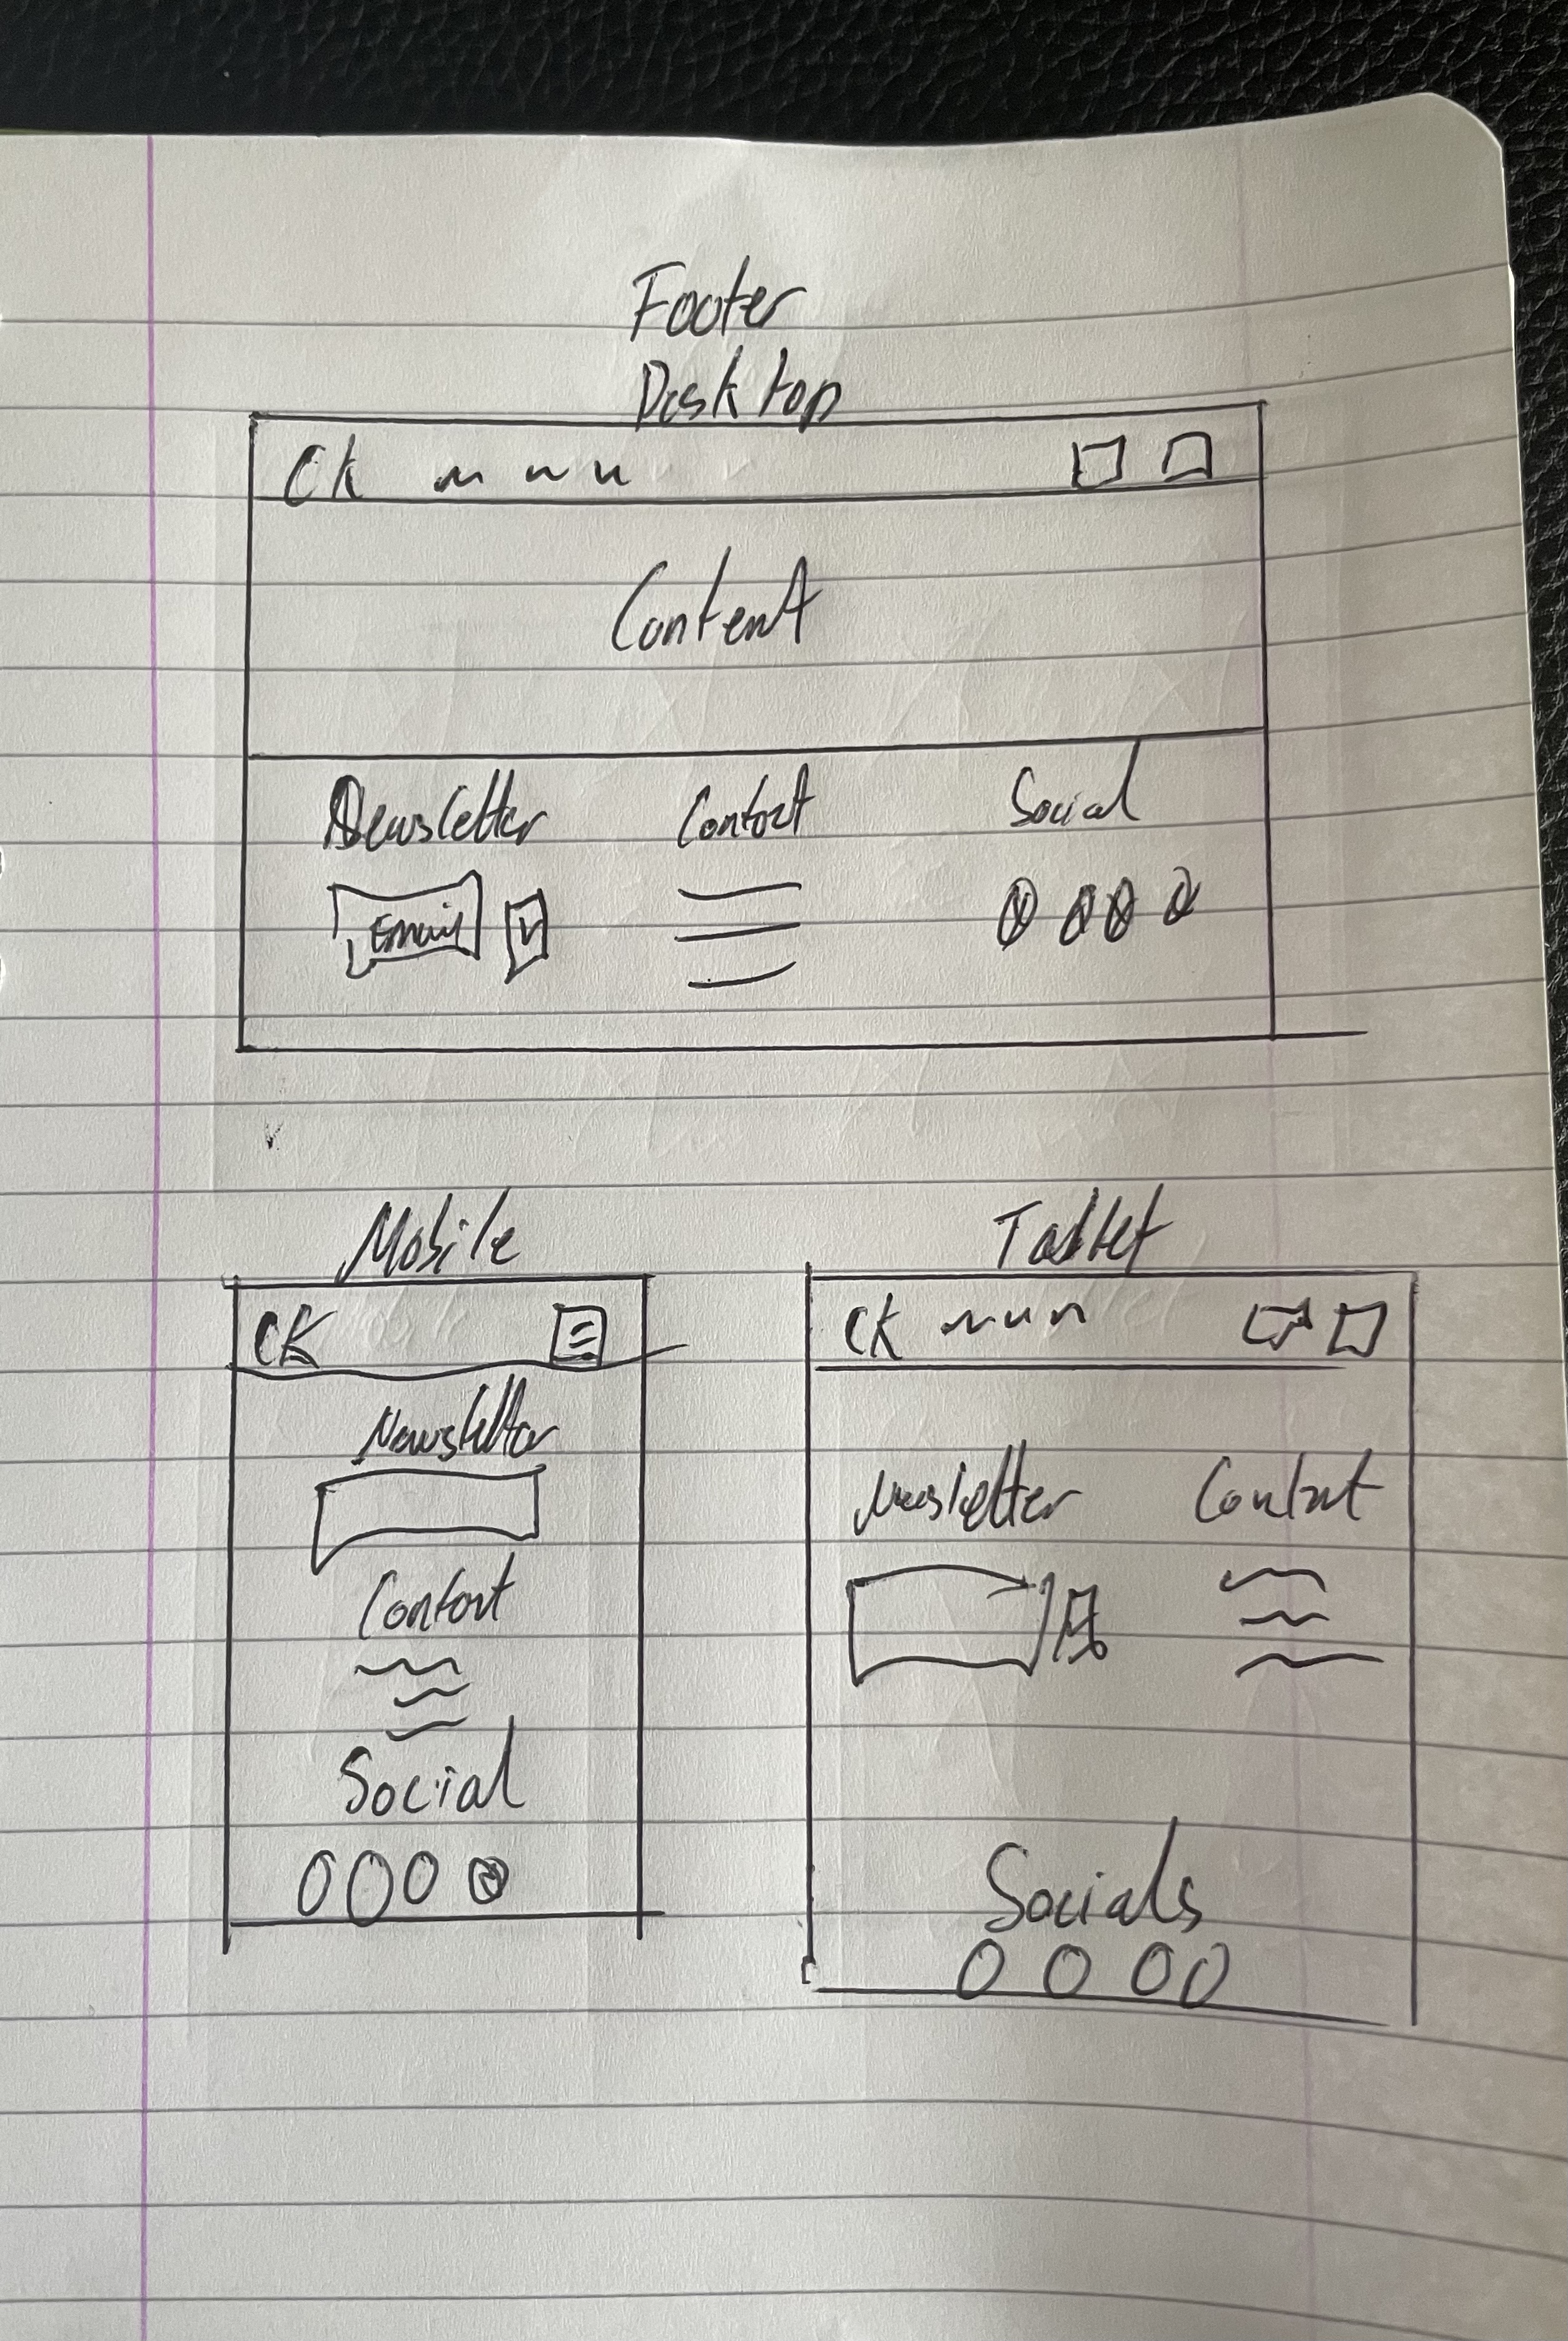 Footer
Desktop
CK
Content
Newsletter Contact Social
Email
Mobile
CK
Newsletter
Contact
Social
Tablet
CK
Newsletter Contact
Socials